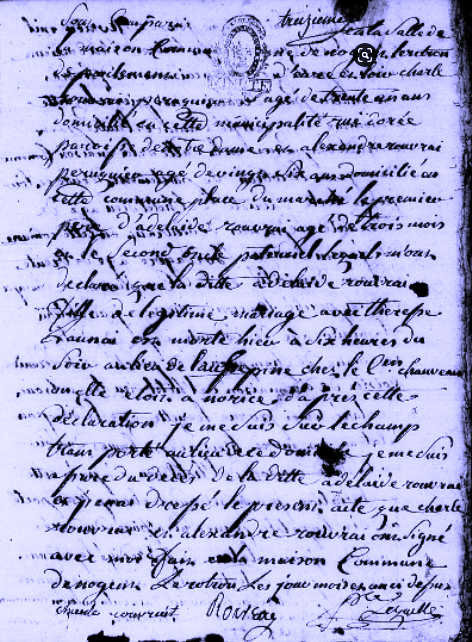 Son comparus troizieme de la Salle de
la maison Commune de nogent lerotrou
charle
rouvrai perruquier agé de trente un ans
domicilié en cette municipalité rue dorée
paroisse de notre dame et alexandre rouvrai
peruquier agé de vingt six ans domicilié en
cette commune place du marché le premier
pere d'adelaide rouvrai agé de trois mois
et le Second oncle paternel lesquels m'ont
declaré que la ditte adelaide rouvrai
fille de legitime mariage avec therese
Launai est morte hier à six heures du
Soir au lieu de l'aubepine chez le C. chauveau
ou elle etoit a norice d'après cette
déclaration je me suis Sur le champ
transporté au lieu de ce domicile je me suis
assuré du deces de la ditte adélaide rouvrai
et j'en ai dressé le present acte que charle
rouvrai et alexandre rouvrai ont Signé
avec moi fait en la maison Commune
de nogent Le rotrou Les jour mois et an ci dessus
rouvrai Rouvrai